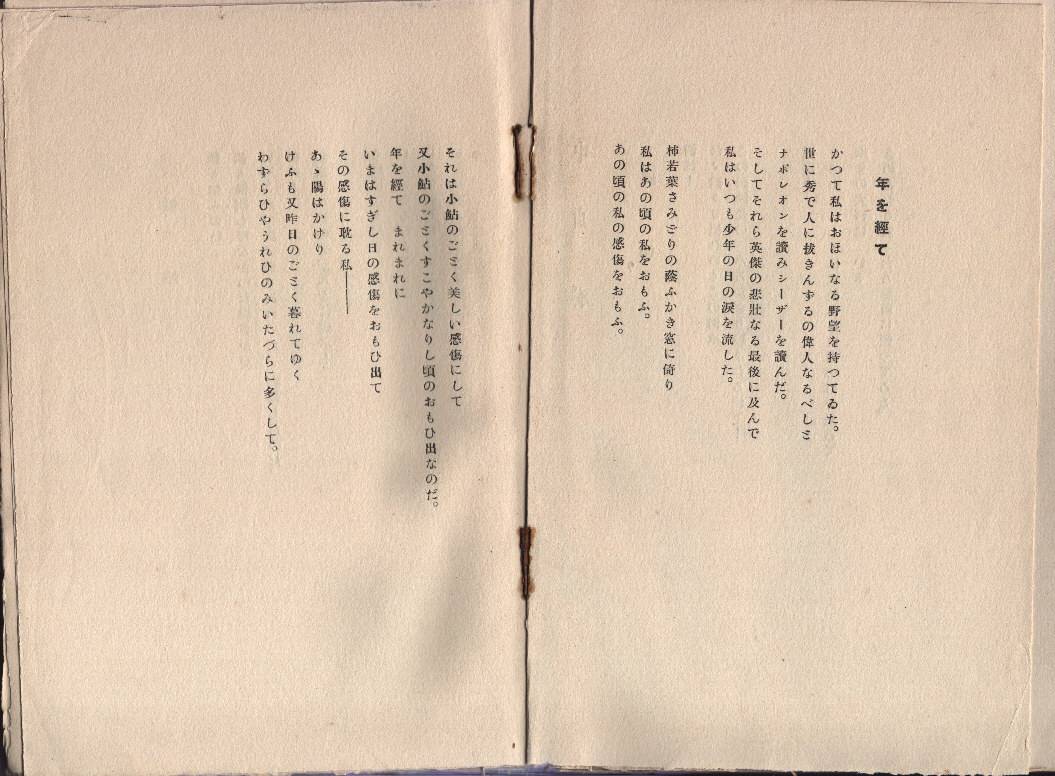 年を經て
かつて私はおほいなる野望を持つてゐた。
世に秀で人に拔きんするの偉人なるべしと
ナポレオンを讀みシーザーを讀んだ。
そしてそれら英傑の悲壯なる最後に及んで
私はいつも少年の日の淚を流した。
柿若葉さみどりの蔭ふかき窓に倚り
私はあの頃の私をおもふ。
あの頃の私の感傷をおもふ。
それは小鮎のごとく美しい感傷にして
又小鮎のごとくすこやかなりし頃のおもひ出なのだ。
年を經て　まれまれに
いまはすぎし日の感傷をおもひ出て
その感傷に耽る私――
あゝ陽はかけり
けふも又昨日のごとく暮れてゆく
わずらひやうれひのみいたづらに多くして。